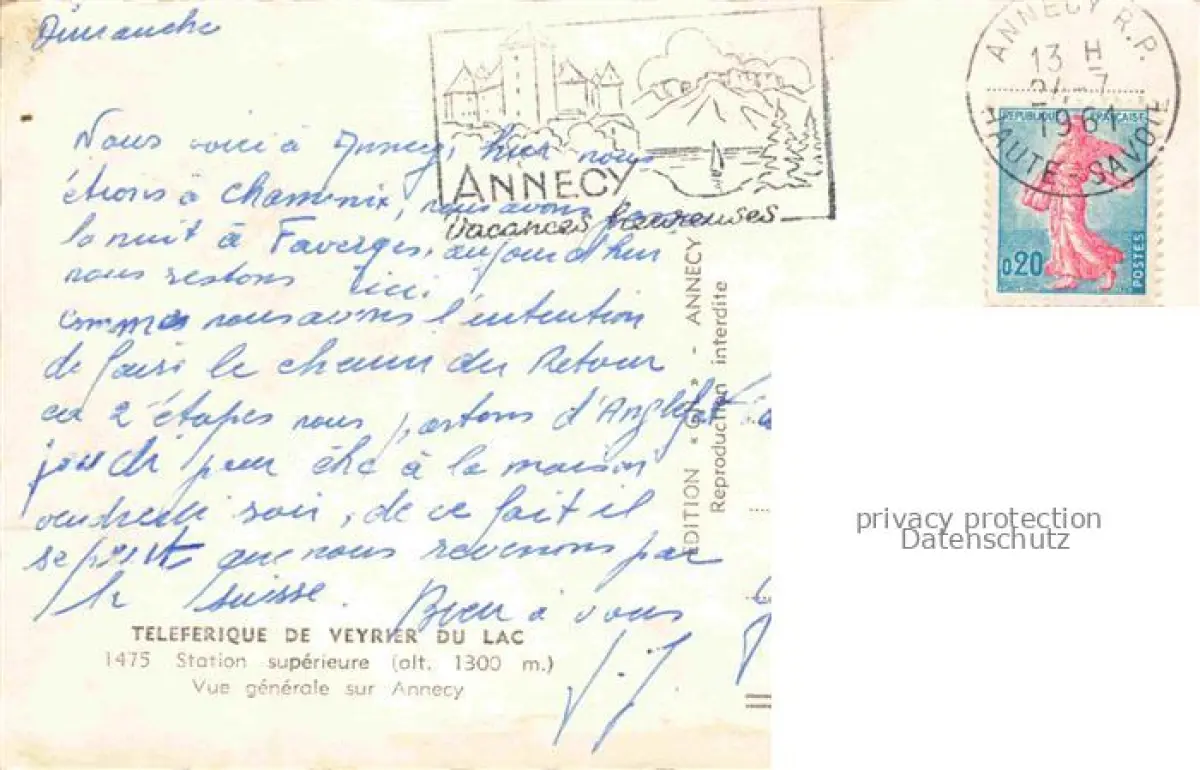 Dimanche
Nous voici à Annecy, hier nous
étions à Chamonix, nous avons
la nuit à Faverges, aujourd'hui
nous restons ici.
comme nous avons l'intention
de faire le chemin du Retour
en 2 étapes nous partons d'
jeudi pour être à la maison
vendredi soir, de ce fait il
se peut que nous revenons par
la suisse. Bien à vous
J.J.
TELEFERIQUE DE VEYRIER DU LAC
1475 Station supérieure (alt. 1300 m.)
Vue générale sur Annecy
EDITION « » - ANNECY
Reproduction interdite
ANNECY
Vacances heureuses
ANNECY R.P.
13 H
24-7
1961
HAUTE-SAVOIE
REPUBLIQUE FRANÇAISE
0,20
POSTES
privacy protection
Datenschutz